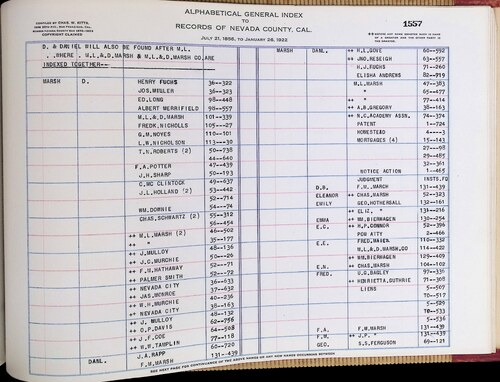 COMPILED BY CHAS. W. KITTS,
COPYRIGHT CLAIMED
ALPHABETICAL GENERAL INDEX
TO
RECORDS OF NEVADA COUNTY, CAL.
JULY 21, 1856, TO JANUARY 26, 1922
1557
D. & DANIEL WILL ALSO BE FOUND AFTER M.L.
..WHERE . M.L.& D. MARSH & M.L.& D. MARSH CO. ARE
INDEXED TOGETHER--
MARSH D. HENRY FUCHS 36--322
36--323
ED. LONG 98--448
ALBERT MERRIFIELD 98--557
M.L. & D. MARSH 101--339
FREDK. NICHOLLS 105---27
G.M. NOYES 110--101
L.W. NICHOLSON 113---30
T.N. ROBERTS (2) 50--738
44--640
F.A. POTTER 47--439
J.H. SHARP 50--193
C. MC CLINTOCK 49--637
J.L. HOLLAND (2) 53--442
52--714
WM. DOWNIE 54---74
CHAS. SCHWARTZ (2) 55--312
56--454
++ M.L. MARSH (2) 46--502
++ " 35--177
++ J. MULLOY 48--136
++ J.C. MURCHIE 50---26
++ F.M. HATHAWAY 52---23
++ PALMER SMITH 52---72
++ NEVADA CITY 36--633
++ JAS. MONROE 37--632
++ W.H. MURCHIE 40--236
++ NEVADA CITY 38--163
++ J. MULLOY 48--132
++ C.P. DAVIS
++ J.F. COE 77--118
++ W.W. TAMPLIN 60--720
DANL. J.A. RAPP
F.M. MARSH 131--439
MARSH DANL. ++ H.L. GOVE 60--592
++ JNO. RESEIGH 63--557
H.J. FUCHS 71--260
ELISHA ANDREWS 82--919
M.L. MARSH 47--383
" 65--477
++ " 77--414
++ A.B. GREGORY 38--163
++ N.C. ACADEMY ASSN. 63--374
PATENT 1--724
HOMESTEAD 4----3
MORTGAGES (4) 15--143
27---98
29--485
32--361
NOTICE ACTION 1--465
JUDGMENT INSTS. FD
D.D. F.M. MARSH 131--439
ELEANOR ++ CHAS. MARSH 52--323
EMILY GEO. HOTHERSALL 132--161
++ ELIZ. " 131--216
EMMA ++ WM. BIERWAGEN 130--254
E.G. ++ H.P. CONNOR 52--396
POW ATTY 2--466
E.E. 110--332
M.L. & D. MARSH, CO 114--422
++ WM. BIERWAGEN 129--409
E.N. ++ CHAS. MARSH 104--102
FRED. U.G. BAGLEY 97--335
++ HENRIETTA, GUTHRIE 71--308
LIENS 5--507
70--517
5--509
70--533
5--536
F.A. F.M. MARSH 131--439
F.W. ++ J.P. " 131--439
GEO. S.S. FERGUSON 69--121
SEE NEXT PAGE FOR CONTINUANCE OF THE ABOVE NAMES OR ANY NEW NAMES OCCURRING BETWEEN